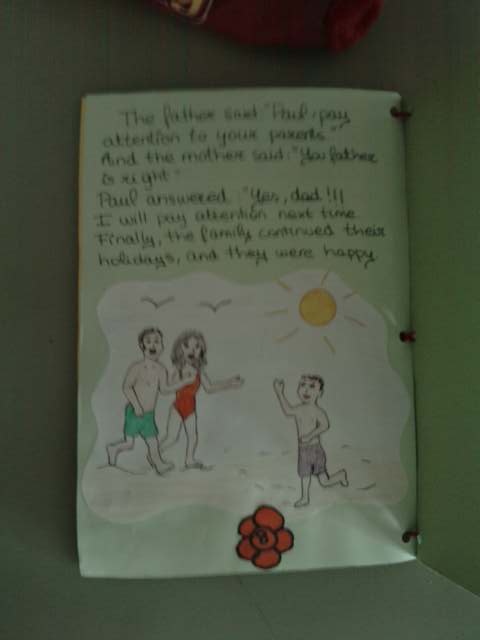 The father said "Paul, pay
attention to your parents"
And the mother said: "You father
is right"
Paul answered: "Yes, dad!!!
I will pay attention next time
Finally, the family continued their
holidays, and they were happy
8